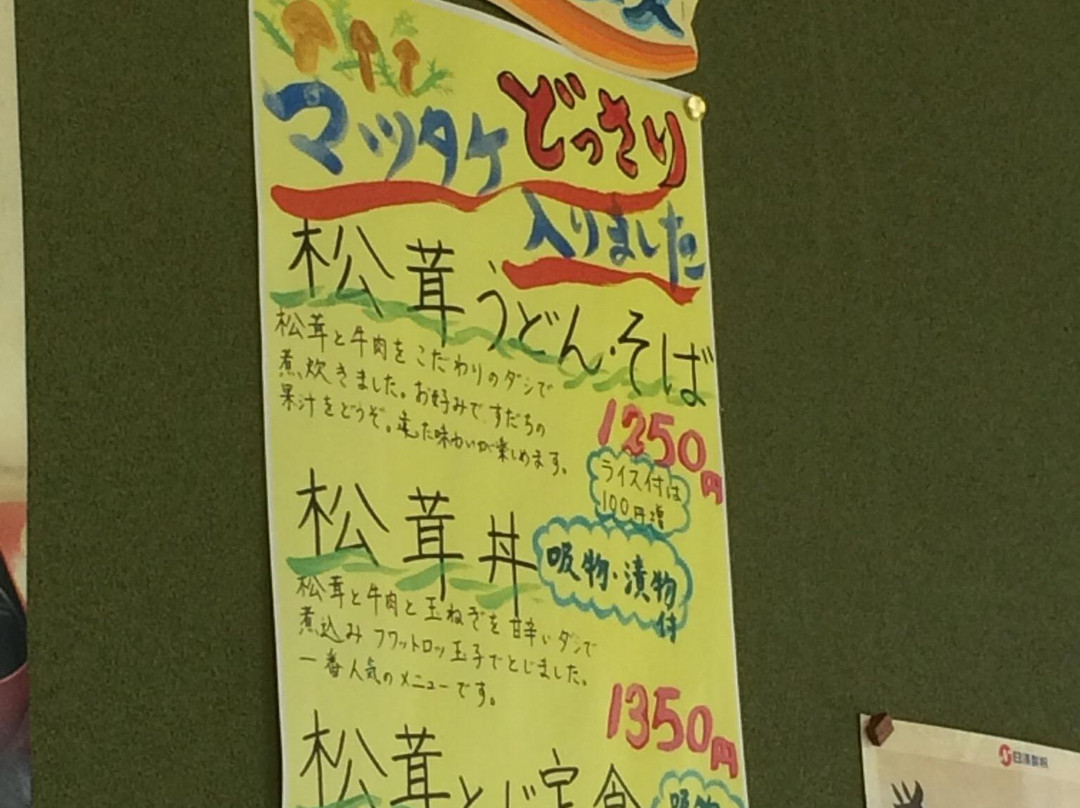 マツタケどっさり
入りました
松茸うどん・そば
松茸と牛肉をこだわりのダシで
煮、炊きました。お好みですだちの
果汁をどうぞ。違った味わいが楽しめます。
1250円
ライス付は
100円増
松茸丼
吸物・漬物
付
松茸と牛肉と玉ねぎを甘辛いダシで
煮込みフワットロッ玉子でとじました。
一番人気のメニューです。
1350円
松茸とじ定食
吸物